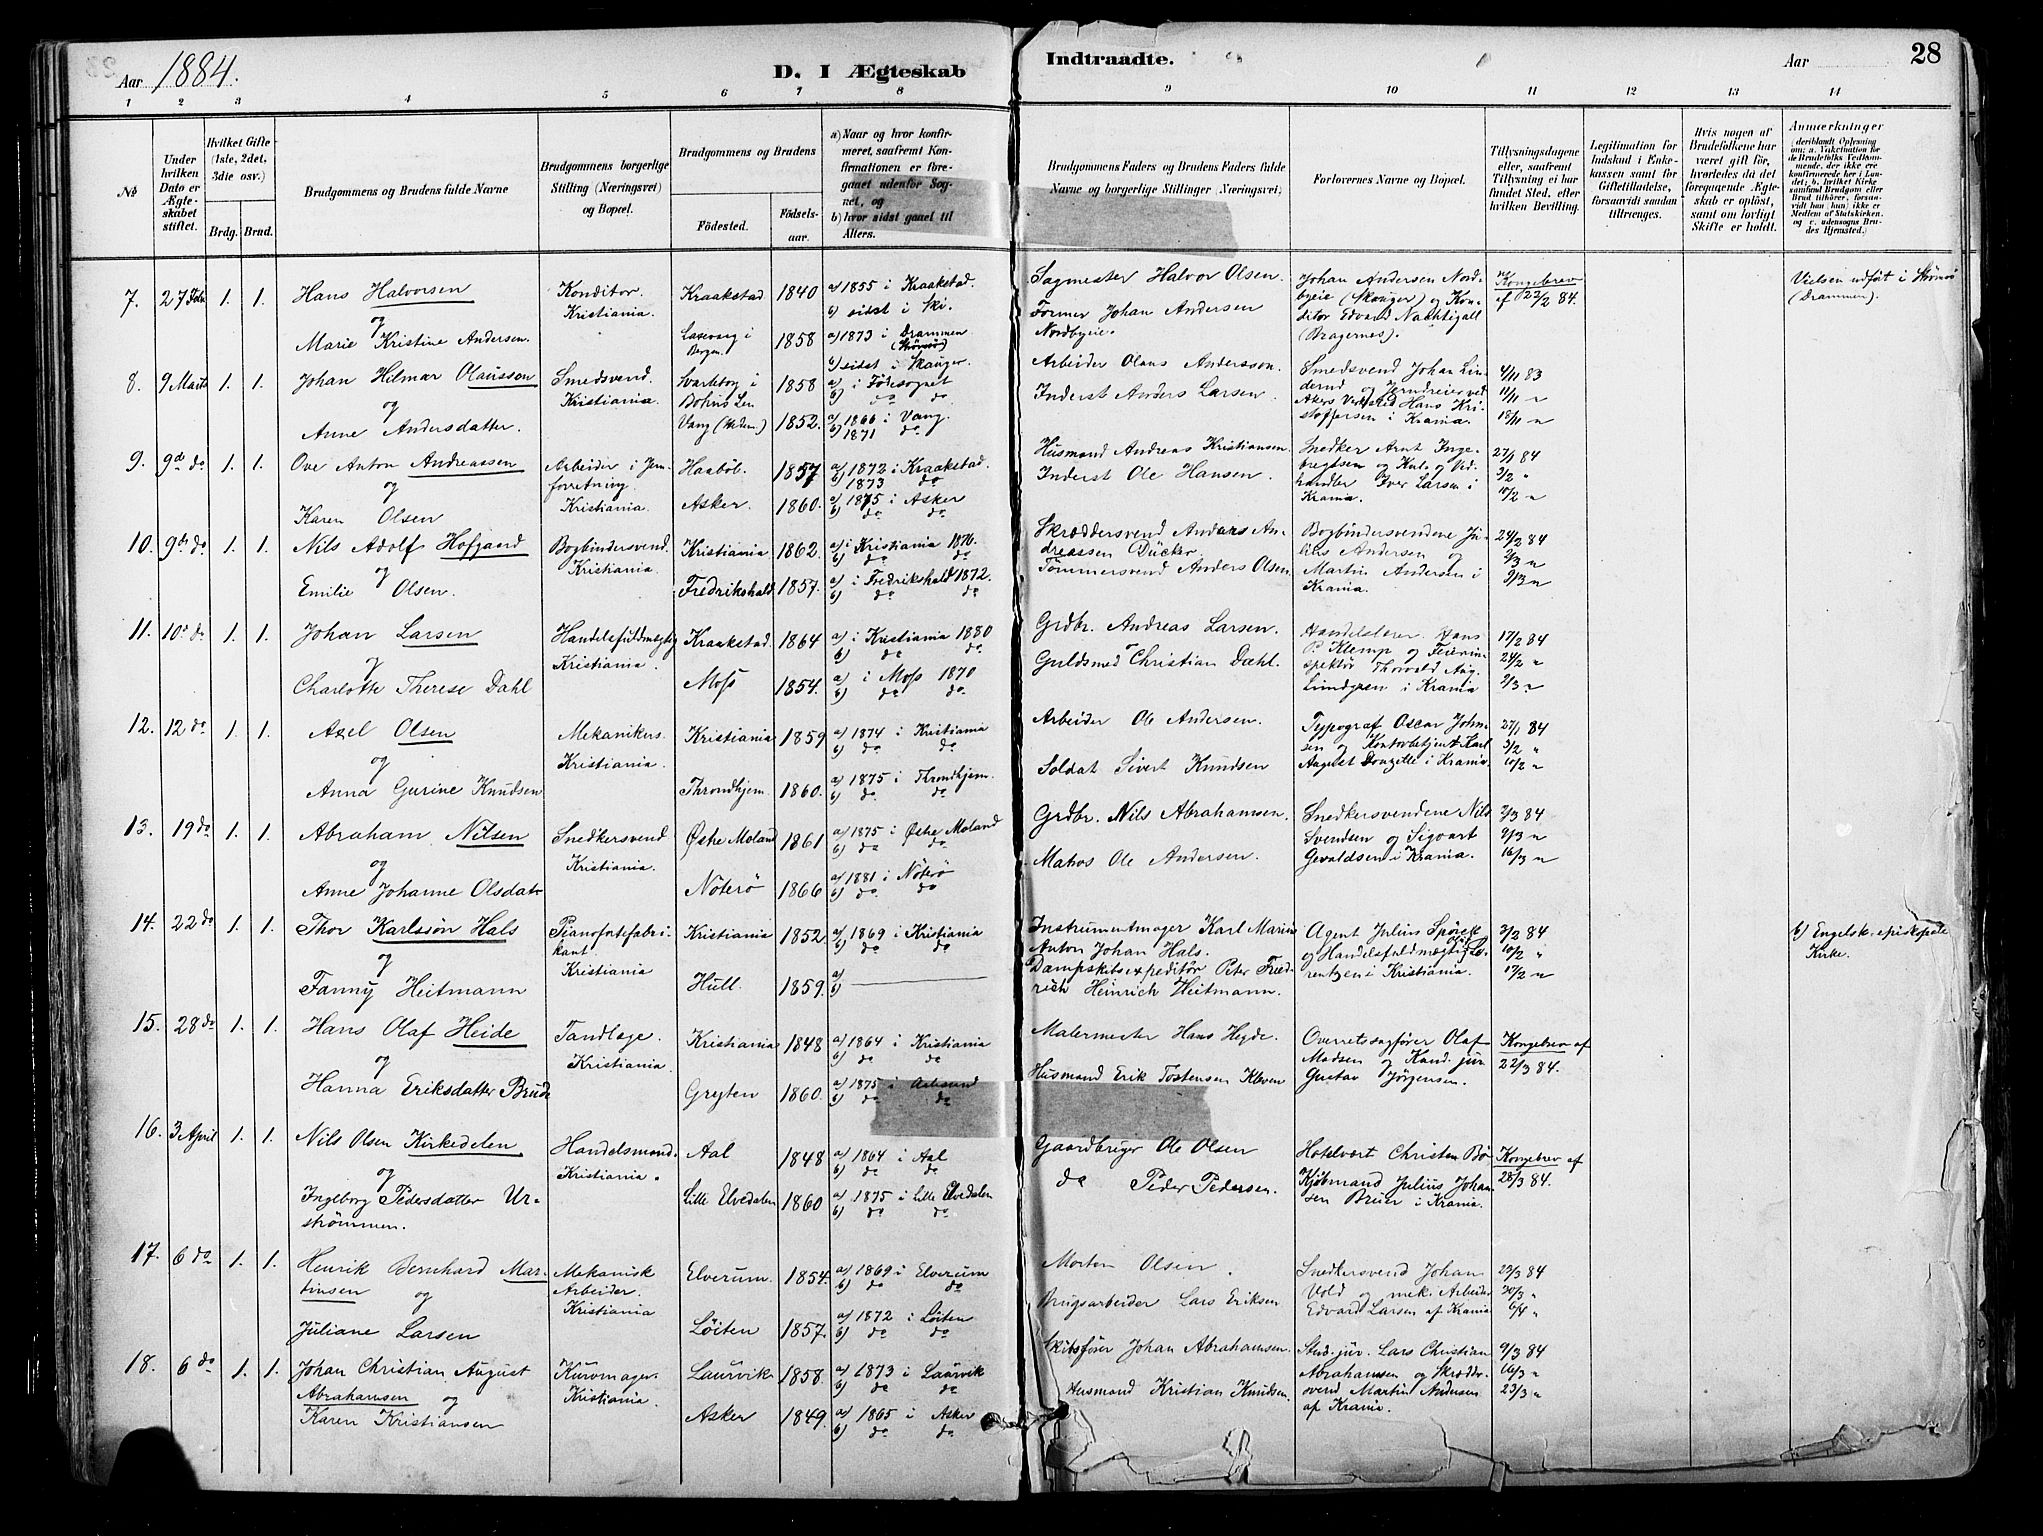 Aar 1884.
D. I Ægteskab Indtraadte.
Aar
28
1 2 3 4 5 6 7 8 9 10 11 12 13 14
No
Under hvilken Dato er Ægteskabet stiftet.
Hvilket Gifte (1ste, 2det, 3die osv.)
Brdg. Brud.
Brudgommens og Brudens fulde Navne
Brudgommens borgerlige Stilling (Næringsvei) og Bopæl.
Brudgommens og Brudens
Fødested.
Fødselsaar.
a) Naar og hvor konfirmeret, saafremt Konfirmationen er foregaaet udenfor Sognet, og
b) hvor sidst gaaet til Alters.
Brudgommens Faders og Brudens Faders fulde Navne og borgerlige Stillinger (Næringsvei).
Forlovernes Navne og Bopæl.
Tillysningsdagene eller, saafremt Tillysning ei har fundet Sted, efter hvilken Bevilling.
Legitimation for Indskud i Enkekassen samt for Giftetilladelse, forsaavidt saadan tiltrænges.
Hvis nogen af Brudefolkene har været gift før, hvorledes da det foregaaende Ægteskab er opløst, samt om lovligt Skifte er holdt.
Anmærkninger (deriblandt Oplysning om: a. Vakcination for de Brudefolks Vedkommende, der ikke ere konfirmerede her i Landet; b. hvilket Kirkesamfund Brudgom eller Brud tilhører, forsaavidt han (hun) ikke er Medlem af Statskirken, og c. udensogns Brudes Hjemsted.)
7. 27 Febr 1. 1. Hans Halvorsen Konditor. Kristiania. Kraakstad 1840 a) 1855 i Kraakstad. b) sidst i Ski. Sagmester Halvor Olsen. Johan Andersen Nordbyeie (Skauger) og Konditor Edvard Nachtigall (Bragernes). Kongebrev af 22/2 84. Vielsen udført i Strømsø (Drammen).
og
Marie Kristine Andersen. Bergen. 1858 a) 1873 i Drammen (Strømsø) b) sidst i Skauger. Former Johan Andersen Nordbyeie.
8. 9 Marts 1. 1. Johan Hilmar Olausson Smedsvend. Kristiania. Svarteborg i Bohus Len 1858 a) i Fødesognet b) do do Arbeider Olaus Andersson. Smedsvend Johan Lindernd og Jerndreier ved Akers Verksted Hans Kristoffersen i Krania. 4/11 83 11/11 " 18/11 "
og
Anne Andersdatter. Vang (Hedem.) 1852. a) 1866 i Vang. b) 1871 do Inderst Anders Larsen.
9. 9d do 1. 1. Ove Anton Andreassen Arbeider i Jernforretning. Kristiania. Haabøl. 1857 a) 1872 i Kraakstad. b) 1873 do Husmand Andreas Kristiansen Snedker Arnt Ingebregtsen og Kul- og Vedhandler Iver Larsen i Krania. 27/1 84 3/2 " 10/2 "
og
Karen Olsen Asker. 1860. a) 1875 i Asker b) do do Inderst Ole Hansen.
10. 9de do 1. 1. Nils Adolf Hofgaard Bogbindersvend. Kristiania. Kristiania 1862. a) i Kristiania 1876. b) do do Skræddersvend Anders Andreassen Dücker. Bogbindersvendene Julius Andersen og Martin Andersen i Krania. 24/2 84 2/3 " 9/3 "
og
Emilie Olsen. Fredrikshald 1857. a) i Fredrikshald 1872. b) do do Tømmersvend Anders Olsen.
11. 10de do 1. 1. Johan Larsen Handelsfuldmægtig Kristiania. Kraakstad. 1864 a) i Kristiania 1880 b) do do Grdbr. Andreas Larsen. Handelslærer Hans P. Klemp og Feierinspektør Thorvald Aug. Lundgren i Krania 17/2 84 24/2 " 2/3 "
og
Charlotte Therese Dahl Moss 1854. a) i Moss 1870 b) do do Guldsmed Christian Dahl.
12. 12 do 1. 1. Axel Olsen Mekanikus. Kristiania. Kristiania 1859 a) 1874 i Kristiania b) do do Arbeider Ole Andersen. Typograf Oscar Johnsen og Kontorbetjent Karl August Donzelle i Krania. 27/1 84 3/2 " 10/2 "
og
Anna Gurine Knudsen Throndhjem. 1860. a) 1875 i Throndhjem. b) do. do. Soldat Sivert Knudsen
13. 19 do 1. 1. Abraham Nilsen Snedkersvend Kristiania. Østre Moland 1861 a) 1875 i Østre Moland b) do do Grdbr. Nils Abrahamsen. Snedkersvendene Nils Svendsen og Sigvart Gevaldsen i Krania. 2/3 84 9/3 " 16/3 "
og
Anne Johanne Olsdatr Nøterø 1866 a) 1881 i Nøterø b) do do Matros Ole Andersen.
14. 22 do 1. 1. Thor Karlsson Hals Pianofortefabrikant. Kristiania Kristiania 1852. a) 1869 i Kristiania b) do do Instrumentmager Karl Marius Anton Johan Hals. Agent Julius og Handelsfuldmægtig Lorentzen i Kristiania. 3/2 84 10/2 " 17/2 " b) Engelsk-episkopale Kirke.
og
Fanny Heitmann Hull. 1859. a) b) Dampskibsexpeditør Peter Friedrich Heinrich Heitmann.
15. 28 do 1. 1. Hans Olaf Heide Tandlæge. Kristiania. Kristiania 1848 a) 1864 i Kristiania b) do do Malermester Hans Hegde. Overretssagfører Olaf Madsen og Kand. jur. Gustav Jørgensen. Kongebrev af 22/3 84.
og
Hanna Eriksdatter Brude Grytten 1860. a) 1875 i Aalesund b) do do Husmand Erik Tostensen Kleven
16. 3 April 1. 1. Nils Olsen Kirkedelen Handelsmand. Kristiania. Aal 1848 a) 1864 i Aal b) do do Gaardbruger Ole Olsen Hotelvært Christen Bø Kjøbmand Julius Johansen Bruer i Krania. Kongebrev af 28/3 84.
og
Ingeborg Pedersdatter Urstrømmen. Lille Elvedalen 1860 a) 1875 i Lille Elvedalen b) do do do Peder Pedersen.
17. 6 do 1. 1. Henrik Bernhard Martinsen Mekanisk Arbeider. Kristiania Elverum. 1854. a) 1869 i Elverum b) do do Morten Olsen. Snedkersvend Johan Vold og mek. Arbeider Edvard Larsen af Krania 23/3 84 30/3 " 6/4 "
og
Juliane Larsen Løiten 1857. a) 1872 i Løiten b) do do Brugsarbeider Lars Eriksen
18. 6 do 1. 1. Johan Christian August Abrahamsen Kurvmager. Kristiania. Laurvik 1858. a) 1873 i Laurvik b) do do Skibsfører Johan Abrahamsen. Stud. jur. Lars Christian Abrahamsen og Skræddersvend Martin Andersen af Krania. 9/3 84 16/3 " 23/3 "
og
Karen Kristiansen Asker 1849. a) 1865 i Asker b) do do Husmand Kristian Knudsen